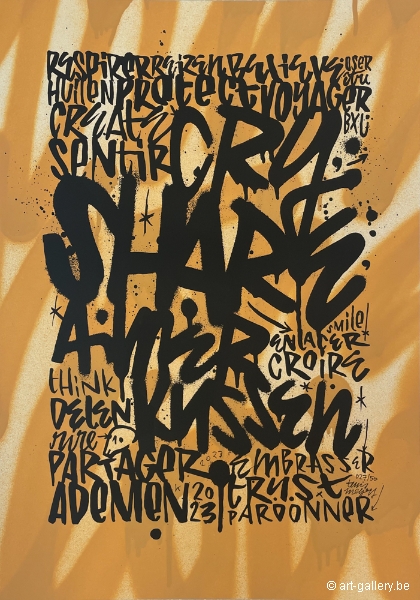 RESPIRER REIZEN
OSER
HUILEN PROTECT VOYAGER
CREATE CRY
BXL
SENTIR
SHARE
AIMER
smile
ENLACER
THINK
CROIRE
DELEN KUSSEN
rire
PARTAGER 2023 EMBRASSER
ADEMEN 2023 TRUST
PARDONNER
© art-gallery.be